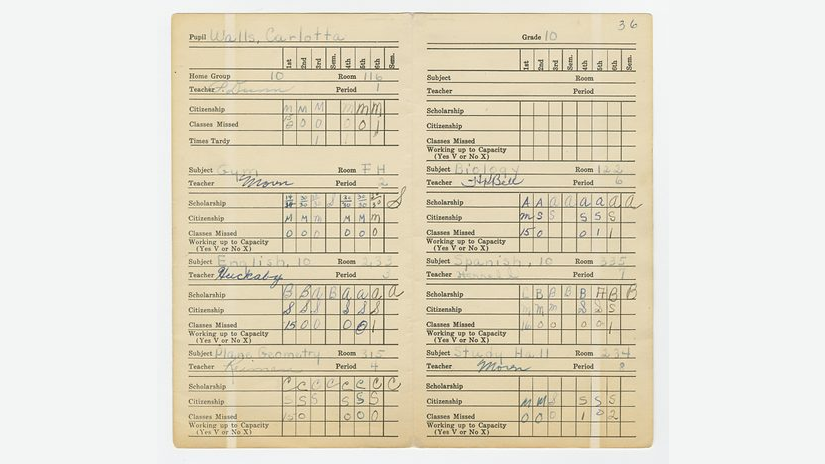 Pupil Walls, Carlotta
1st 2nd 3rd Sem. 4th 5th 6th Sem.
Home Group 10 Room 116
Teacher Period 1
Citizenship M M M M M M
Classes Missed 0 0 0 1
Times Tardy 1 1
Subject Gym Room F H
Teacher Moren Period 2
Scholarship S S
Citizenship M M M M M M
Classes Missed 0 0 0 0 0 0
Working up to Capacity
(Yes V or No X)
Subject English, 10 Room
Teacher Huckaby Period 3
Scholarship B B B A A A A
Citizenship S S S S S S
Classes Missed 15 0 0 0 0 1
Working up to Capacity
(Yes V or No X)
Subject Plane Geometry Room 315
Teacher Period 4
Scholarship C C C C C C C C
Citizenship S S S S S S
Classes Missed 15 0 0 0 0
Working up to Capacity
(Yes V or No X)
36
Grade 10
1st 2nd 3rd Sem. 4th 5th 6th Sem.
Subject Room
Teacher Period
Scholarship
Citizenship
Classes Missed
Working up to Capacity
(Yes V or No X)
Subject Biology Room 122
Teacher Bell Period 6
Scholarship A A a a a a a a
Citizenship m S S S S S
Classes Missed 15 0 0 1 1
Working up to Capacity
(Yes V or No X)
Subject Spanish, 10 Room 335
Teacher Period 7
Scholarship C B B B B A B B
Citizenship m m m S S S
Classes Missed 0 0 0 0 1
Working up to Capacity
(Yes V or No X)
Subject Study Hall Room 234
Teacher Moren Period
Scholarship
Citizenship M M S S S S
Classes Missed 0 0 0 1 0 2
Working up to Capacity
(Yes V or No X)